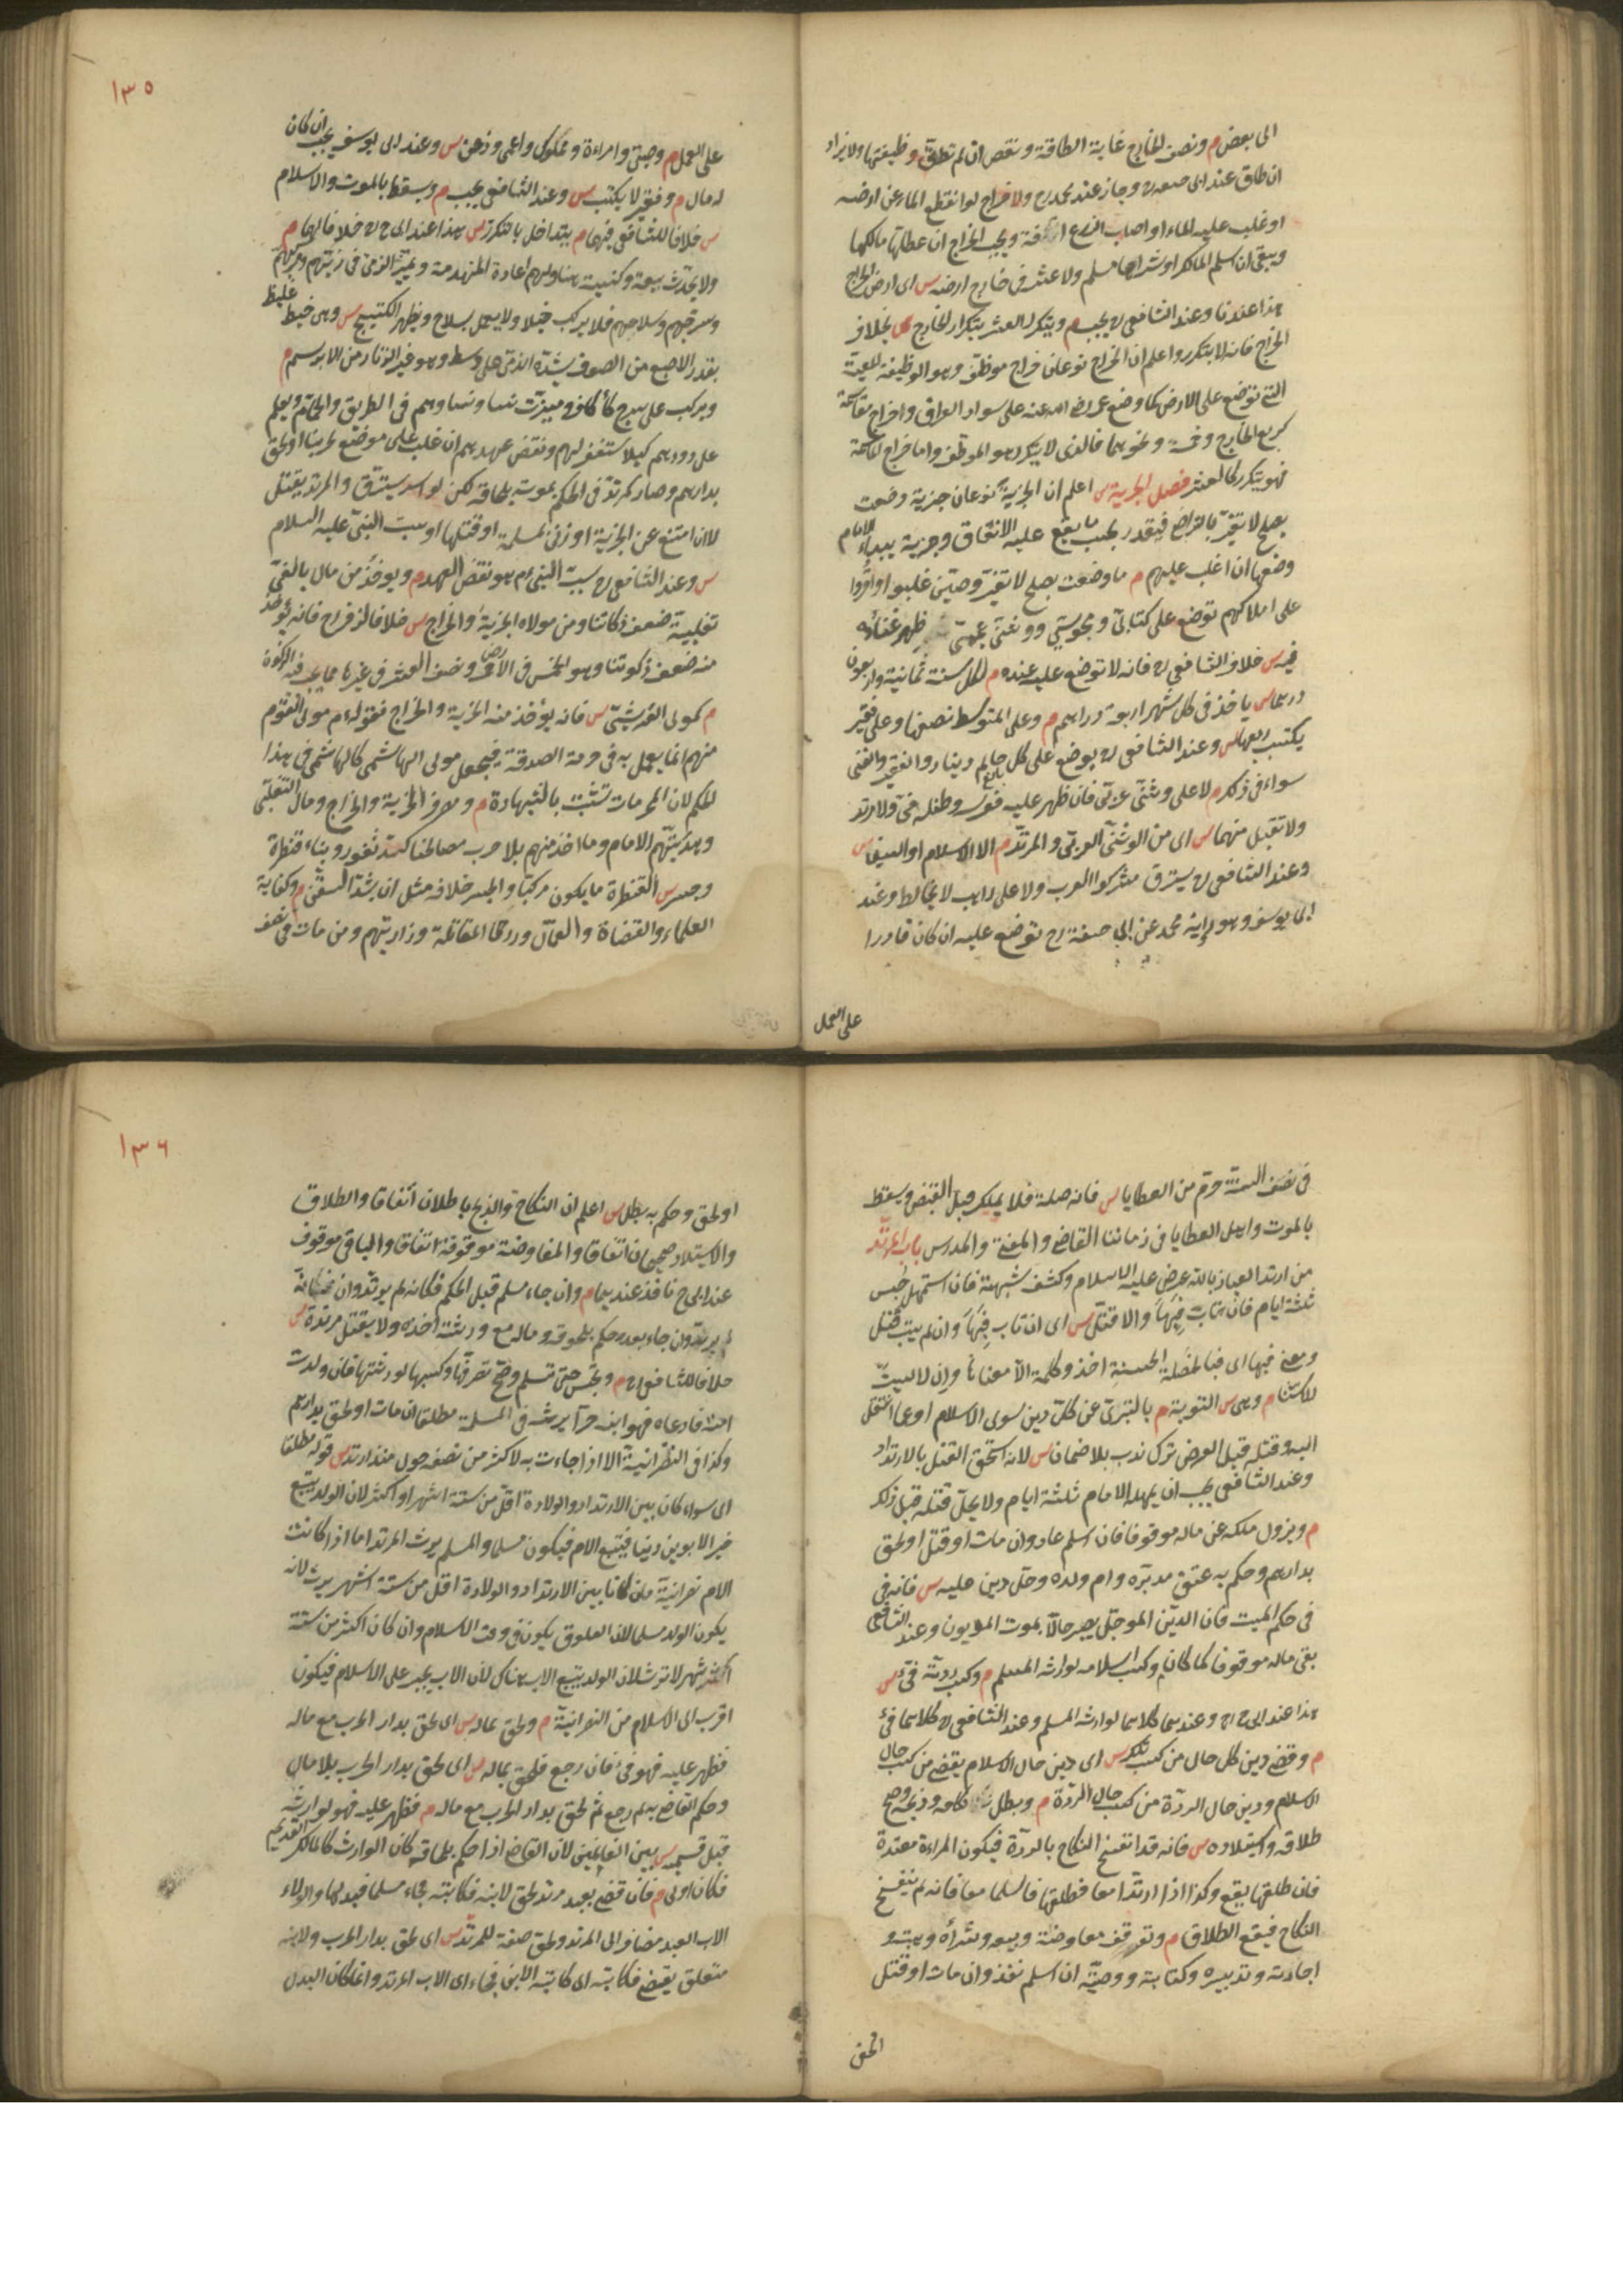 الى بعض م ونصف الخارج غاية الطاقة ونقص ان لم تطق وظيفتها ولا يزاد
ان طاق عند ابى حنيفه رح وجاز عند محمد رح ولا خراج لو انقطع الماء عن ارضه
او غلب عليه الماء او اصاب الزرع آفة ويجب الخراج ان عطلها مالكها
ويبقى ان اسلم المالك او شراها مسلم ولا عشر فى خارج ارضه س اى ارض الخراج
هذا عندنا وعند الشافعى رح يجب م ويتكرر العشر بتكرار الخارج س بخلاف
الخراج فانه لا يتكرر واعلم ان الخراج نوعان خراج موظف وهو الوظيفة المعينة
التى توضع على الارض كما وضع عمر رضى الله عنه على سواد العراق وخراج مقاسمة
كربع الخارج وخمسه ونحوهما فالذى لا يتكرر هو الموظف واما خراج المقاسمة
فهو يتكرر كالعشر فصل الجزية س اعلم ان الجزية نوعان جزية وضعت
بصلح لا تغير بالتراضى فيقدر بحسب ما يقع عليه الاتفاق وجزية يبداء الامام
وضعها ان غلب عليهم م ما وضعت بصلح لا تغير وحين غلبوا واقروا
على املاكهم توضع على كتابى ومجوسى ووثنى عجمى ظهر غناؤه
فيه س خلاف الشافعى رح فانه لا توضع عليه عنده م لكل سنة ثمانية واربعون
درهما س ياخذ فى كل شهر اربعة دراهم م وعلى المتوسط نصفها وعلى فقير
يكتسب ربعها س وعند الشافعى رح يوضع على كل حالم بالغ دينار والفقير والغنى
سواء فى ذلك م لا على وثنى عربى فان ظهر عليه فعرسه وطفله فئ ولا مرتد
ولا تقبل منهما س اى من الوثنى العربى والمرتد م الا الاسلام او السيف س
وعند الشافعى رح يسترق مشركوا العرب ولا على راهب لا يخالط وعند
ابى يوسف وهو رواية محمد عن ابى حنيفة رح توضع عليه ان كان قادرا
على العمل
١٣٥
على العمل م وصبى وامراءة ومملوك واعمى وزمن س وعند ابى يوسف يجب ان كان
له مال م وفقير لا يكتسب س وعند الشافعى يجب م ويسقط بالموت والاسلام
س خلافا للشافعى فيهما م يتداخل بالتكرر س هذا عند ابى ح رح خلافا لهما م
ولا يحدث بيعة وكنيسة هنا ولهم اعادة المنهدمة ويميز الذمى فى زيهم ومركبهم
وسرجهم وسلاحهم فلا يركب خيلا ولا يعمل بسلاح ويظهر الكستيج س وهى خيط غليظ
بقدر الاصبع من الصوف يشده الذمى على وسطه وهو غير الزنار من الابريسم م
ويركب على سرج كاكاف وميزت نساؤهم فى الطريق والحمام ويعلم
على دورهم كيلا يستغفر لهم ونقض عهدهم ان غلب على موضع لحربنا او لحق
بدارهم وصار كمرتد فى الحكم بموته بلحاقه لكن لو اسر يسترق والمرتد يقتل
لا ان امتنع عن الجزية او زنى بمسلمة او قتلها او سب النبى عليه السلام
س وعند الشافعى رح سب النبى عم هو نقض العهد م ويوخذ من مال بالغى
تغلبية ضعف زكاتنا ومن مولاه الجزية والخراج س خلافا لزفر رح فانه يؤخذ
منه ضعف زكوتنا وهو الخمس فى الارض ونصف العشر فى غيرها مما يجب فيه الزكوة
م كمولى القرشى س فانه يؤخذ منه الجزية والخراج فقوله عم مولى القوم
منهم انما يعمل به فى حرمة الصدقة فيجعل مولى الهاشمى كالهاشمى فى هذا
الحكم لان المحرمات تثبت بالشبهات م ومصرف الجزية والخراج ومال التغلبى
وهديتهم الامام وما اخذ منهم بلا حرب مصالحنا كسد ثغور وبناء قنطرة
وجسر س القنطرة ما يكون مركبا والجسر خلافه مثل ان يشد السفن م وكفاية
العلماء والقضاة والعمال ورزق المقاتلة وذراريهم ومن مات فى نصف
فى نصف السنة حرم من العطايا س فانه صلة فلا يملك قبل القبض ويسقط
بالموت واهل العطايا فى زماننا القاضى والمفتى والمدرس باب المرتد
من ارتد العياذ بالله عرض عليه الاسلام وكشف شبهته فان استمهل حبس
ثلثة ايام فان تاب فبها والا قتل س اى ان تاب فبها وان لم يتب قتل
ومعنى فبها اى فبالخصلة الحسنة اخذ وكلمة الا معناها وان لا ليست
للاستثناء م وهى س التوبة م بالتبرى عن كل دين سوى الاسلام او عما انتقل
اليه وقتله قبل العرض ترك ندب بلا ضمان س لانه استحق القتل بالارتداد
وعند الشافعى يجب ان يمهله الامام ثلثة ايام ولا يحل قتله قبل ذلك
م ويزول ملكه عن ماله موقوفا فان اسلم عاد وان مات او قتل او لحق
بدارهم وحكم به عتق مدبره وام ولده وحل دين عليه س فانه فى
فى حكم الميت فان الدين الموجل يصير حالا بموت المديون وعند الشافعى
بقى ماله موقوفا كما كان م وكسب اسلامه لوارثه المسلم م وكسب ردته فئ س
هذا عند ابى ح رح وعندهما كلاهما لوارثه المسلم وعند الشافعى رح كلاهما فئ
م وقضى دين كل حال من كسب تلك س اى دين حال الاسلام يقضى من كسب حال
الاسلام ودين حال الردة من كسب حال الردة م وبطل نكاحه وذبحه وصح
طلاقه واستيلاده س فانه قد انفسخ النكاح بالردة فيكون المراءة معتدة
فان طلقها يقع وكذا اذا ارتدا معا فطلقها فاسلما معا فانه لم ينفسخ
النكاح فيقع الطلاق م وتوقف مفاوضته وبيعه وشراؤه وهبته و
اجارته وتدبيره وكتابته ووصيته ان اسلم نفذ وان مات او قتل
الحق
١٣٦
او لحق وحكم به بطل س اعلم ان النكاح والذبح باطلان اتفاقا والطلاق
والاستيلاد صحيحان اتفاقا والمفاوضة موقوفة اتفاقا والباقى موقوف
عند ابى ح نافذ عندهما م وان جاء مسلم قبل الحكم فكانه لم يرتد وان
جاء بعده حكم بلحوقه وماله مع ورثته اخذه ولا يقتل مرتدة س
خلافا للشافعى رح م وتحبس حتى تسلم وصح تصرفها وكسبها لورثتها فان ولدت
امته فادعاه فهو ابنه حرا يرثه فى المسلمة مطلقا ان مات او لحق بدارهم
وكذا فى النصرانية الا اذا جاءت به لاكثر من نصف حول منذ ارتد س قوله مطلقا
اى سواء كان بين الارتداد والولادة اقل من ستة اشهر او اكثر لان الولد يتبع
خير الابوين دينا فيتبع الام فيكون مسلما والمسلم يرث المرتد اما اذا كانت
الام نصرانية فان كان بين الارتداد والولادة اقل من ستة اشهر يرث لانه
يكون الولد مسلما لان العلوق يكون فى وقت الاسلام وان كان اكثر من ستة
اشهر لا يرث لان الولد يتبع الاب هناك لان الاب يجبر على الاسلام فيكون
اقرب الى الاسلام من النصرانية م ولحق بماله س اى لحق بدار الحرب مع ماله
فظهر عليه فهو فئ فان رجع فلحق بماله س اى لحق بدار الحرب بلا مال
وحكم القاضى به ثم رجع ثم لحق بدار الحرب مع ماله م فظهر عليه فهو لوارثه
قبل قسمته س بين الغانمين لان القاضى اذا حكم بلحاقه كان الوارث كالمالك القديم
فكان اولى م فان قضى بعبد مرتد لحق لابنه فكاتبه فجاء مسلما فبدلها والولاء
الاب العبد مضاف الى المرتد ولحق صفة للمرتد س اى لحق بدار الحرب ولابنه
متعلق بقضى فكاتبه اى كاتبه الابن فجاء اى الاب المرتد وانما كان البدل